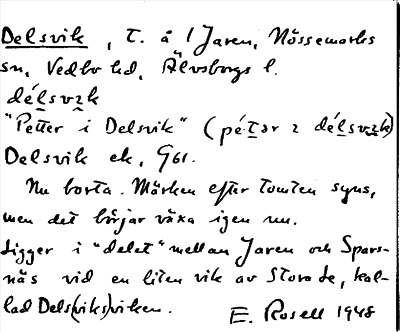 Delsvik, T. å 1 Jaren, Nössemarks
sn, Vedbo hd, Älvsborgs l.
délsvɪk
"Petter i Delsvik" (pé·tər ɪ délsvɪk)
Delsvik ek, G61.
Nu borta. Märken efter tomten syns,
men det börjar växa igen nu.
Ligger i "delet" mellan Jaren och Spars-
näs vid en liten vik av Stora Le, kal-
lad Dels(viks)viken.
E. Rosell 1948